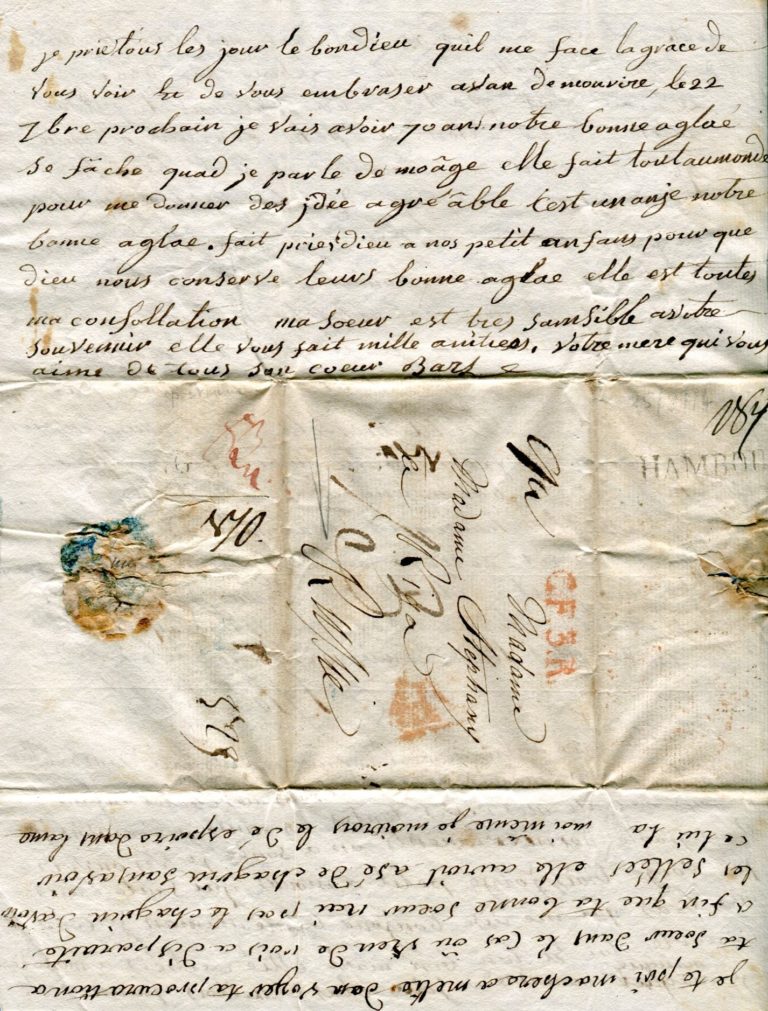 je prie tous les jour le bondieu quil me face la grace de
vous voir et de vous embraser avan de mourire, le 22
7bre prochain je vais avoir 70 an notre bonne aglaé
se fâche quad je parle de moâge elle fait toutaumonde
pour me donner des jdée agréâble c'est unanje notre
bonne aglae. fait prier dieu a nos petit anfans pour que
dieu nous conserve leurs bonne aglae elle est toutes
ma consollation ma soeur est tres sansible avotre
souvenir elle vous fait mille amities. votre mere qui vous
aime de tous son coeur Bars
184
HAMBOU
A
Madame
Madame Stephany
de
a Riga
Russie
C.F.3.R
je te pri machere amelie dan voyer ta procuration a
ta soeur dans le cas ou je vien de rois a disparaite
a fin que ta bonne soeur nai pas le chagrin davoir
les sellées elle auroit asé de chagrin sansavoir
ce lui la moi meme je mouirois le dé espoire dans lame